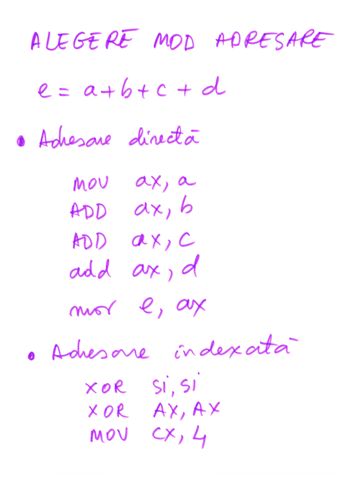 ALEGERE MOD ADRESARE
e = a+b+c+d
• Adresare directă
MOV ax, a
ADD ax, b
ADD ax, c
add ax, d
mov e, ax
• Adresare indexată
XOR si, si
XOR AX, AX
MOV CX, 4